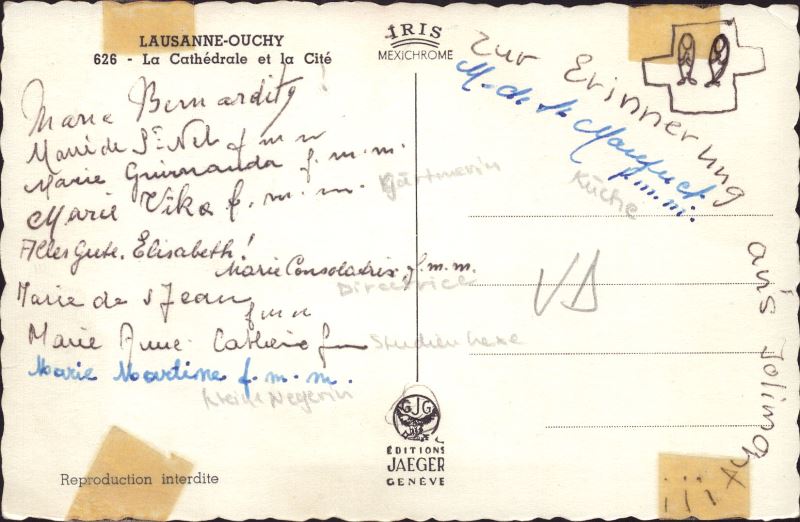 LAUSANNE-OUCHY
626 - La Cathédrale et la Cité
IRIS
MEXICHROME
Marie Bernarditz!
Marie de St f m m
Marie f. m. m.
Marie Vika f. m. m.
Gärtnerin
Alles Gute. Elisabeth!
Marie Consolatrix, f. m. m.
Directrice
Marie de s Jean
f m m
Marie Anne Catherine fmm
Studienhexe
Marie Martine f. m. m.
Negerin
Reproduction interdite
GJG
ÉDITIONS
JAEGER
GENÈVE
Zur Erinnerung
M. de
f.m.m.
Küche
ans Jolimay
!!!
VD